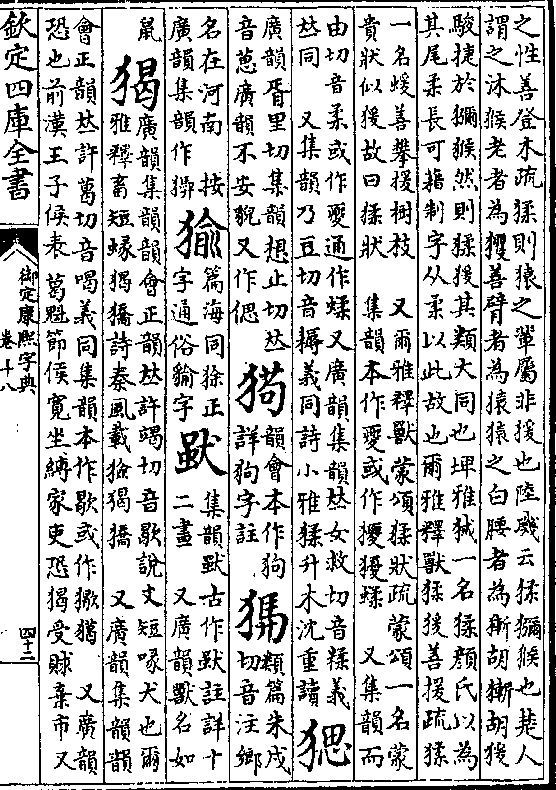 之性善登木疏猱則猿之輩屬非援也陸璣云猱獼猴也楚人
謂之沐猴老者為玃善臂者為猿猿之白腰者為獑胡獑胡猨
駿捷於獼猴然則猱猨其類大同也埤雅狨一名猱顔氏以為
其尾柔長可藉制字从柔以此故也爾雅釋獸猱猨善援疏猱
一名蝯善攀援樹枝　又爾雅釋獸蒙頌猱狀疏蒙頌一名蒙
貴狀似猨故曰猱狀　集韻本作夒或作獶獿蝚　又集韻而
由切音柔或作夒通作蝚又廣韻集韻𠀤女救切音糅義
𠀤同　又集韻乃豆切音槈義同詩小雅猱升木沈重讀
猲
廣韻胥里切集韻想止切𠀤
音葸廣韻不安貌又作偲
㺃
韻會本作狗
詳狗字註
㺉
類篇朱戍
切音注鄉
名在河南　按
廣韻集韻作㹿
㺄
篇海同狳正
字通俗貐字
㹤
集韻獸古作㹤註詳十
二畫　又廣韻獸名如
鼠
猲
廣韻集韻韻會正韻𠀤許竭切音歇說文短喙犬也爾
雅釋畜短喙猲獢詩秦風載獫猲獢　又廣韻集韻韻
會正韻𠀤許葛切音喝義同集韻本作歇或作獥猶　又廣韻
恐也前漢王子侯表葛魁節侯寬坐縛家吏恐猲受賕棄市又
欽定四庫全書
御定康熙字典
卷十八
四十二